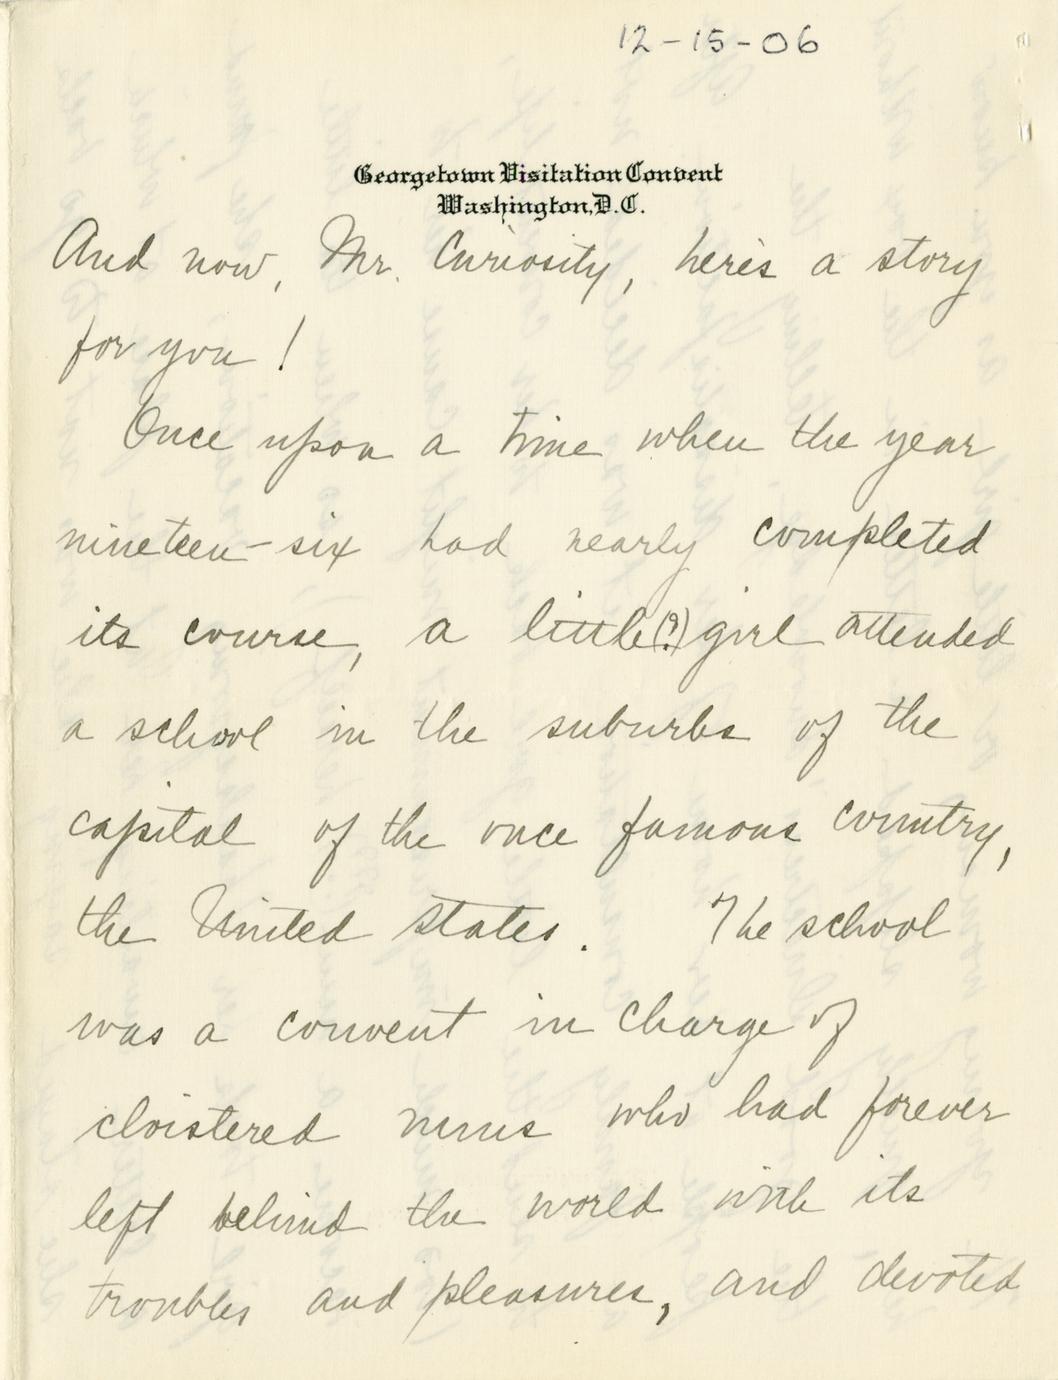 12-15-06
Georgetown Visitation Convent
Washington, D.C.
And now, Mr. Curiosity, here's a story
for you!
Once upon a time when the year
nineteen-six had nearly completed
its course, a little(?) girl attended
a school in the suburbs of the
capital of the once famous country,
the United States. The school
was a convent in charge of
cloistered nuns who had forever
left behind the world with its
troubles and pleasures, and devoted